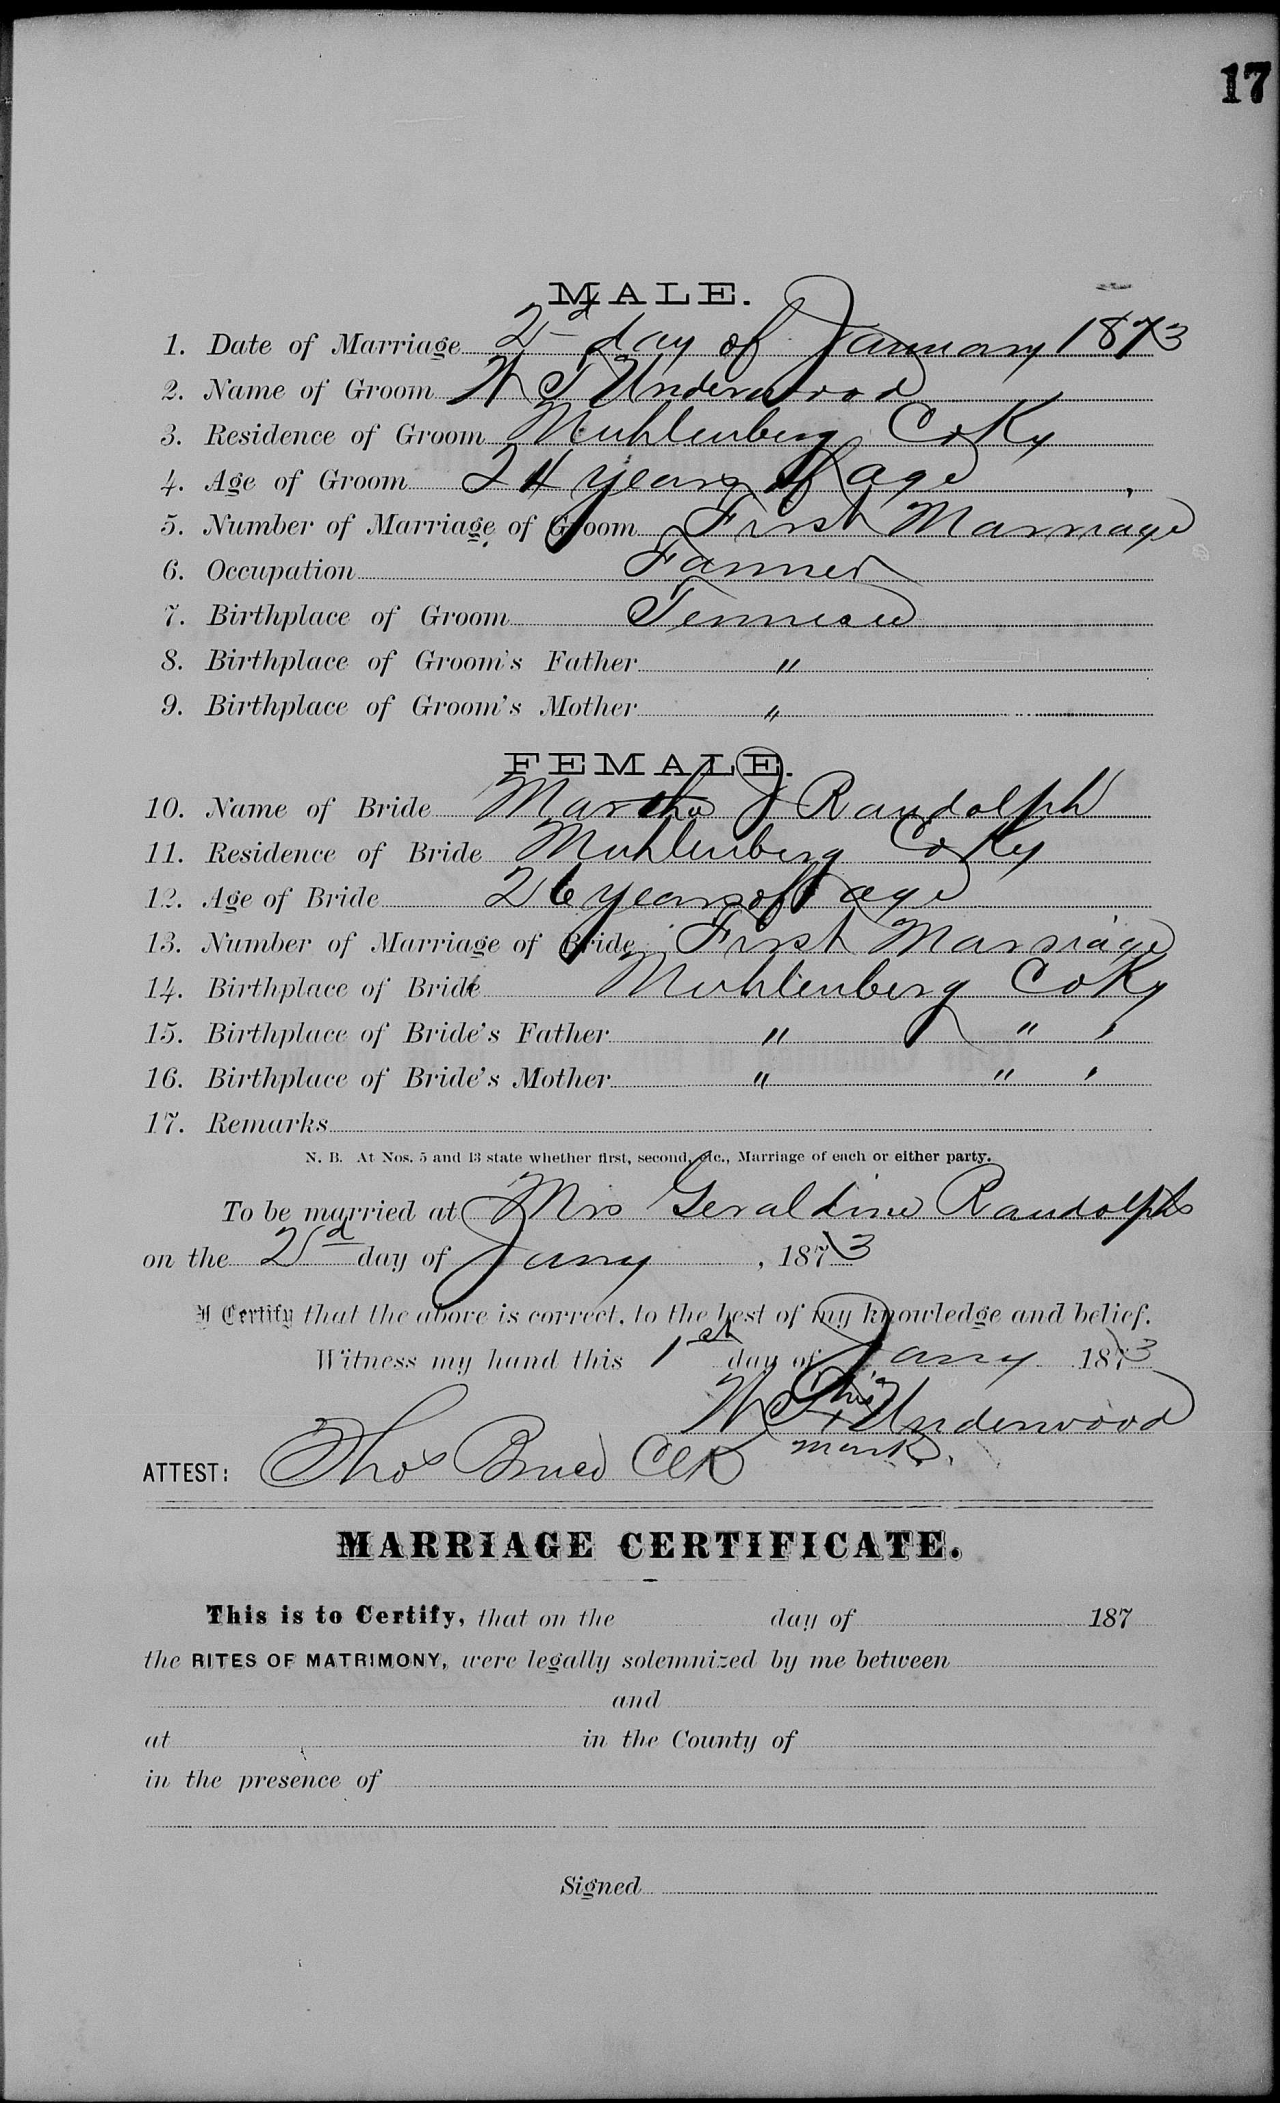 17
MALE.
1. Date of Marriage 2d day of January 1873
2. Name of Groom W T Underwood
3. Residence of Groom Muhlenberg Co Ky
4. Age of Groom 24 years of age
5. Number of Marriage of Groom First Marriage
6. Occupation Farmer
7. Birthplace of Groom Tennessee
8. Birthplace of Groom's Father "
9. Birthplace of Groom's Mother "
FEMALE.
10. Name of Bride Martha J Randolph
11. Residence of Bride Muhlenberg Co Ky
12. Age of Bride 26 years of age
13. Number of Marriage of Bride First Marriage
14. Birthplace of Bride Muhlenberg Co Ky
15. Birthplace of Bride's Father " " '
16. Birthplace of Bride's Mother " " '
17. Remarks
N. B. At Nos. 5 and 13 state whether first, second, etc., Marriage of each or either party.
To be married at Mrs Geraldine Randolphs
on the 2d day of Jany , 1873
I Certify that the above is correct, to the best of my knowledge and belief.
Witness my hand this 1st day of Jany 1873
his
W T x Underwood
mark
ATTEST: Thos Bruce Clk
MARRIAGE CERTIFICATE.
This is to Certify, that on the day of 187
the RITES OF MATRIMONY, were legally solemnized by me between
and
at in the County of
in the presence of
Signed